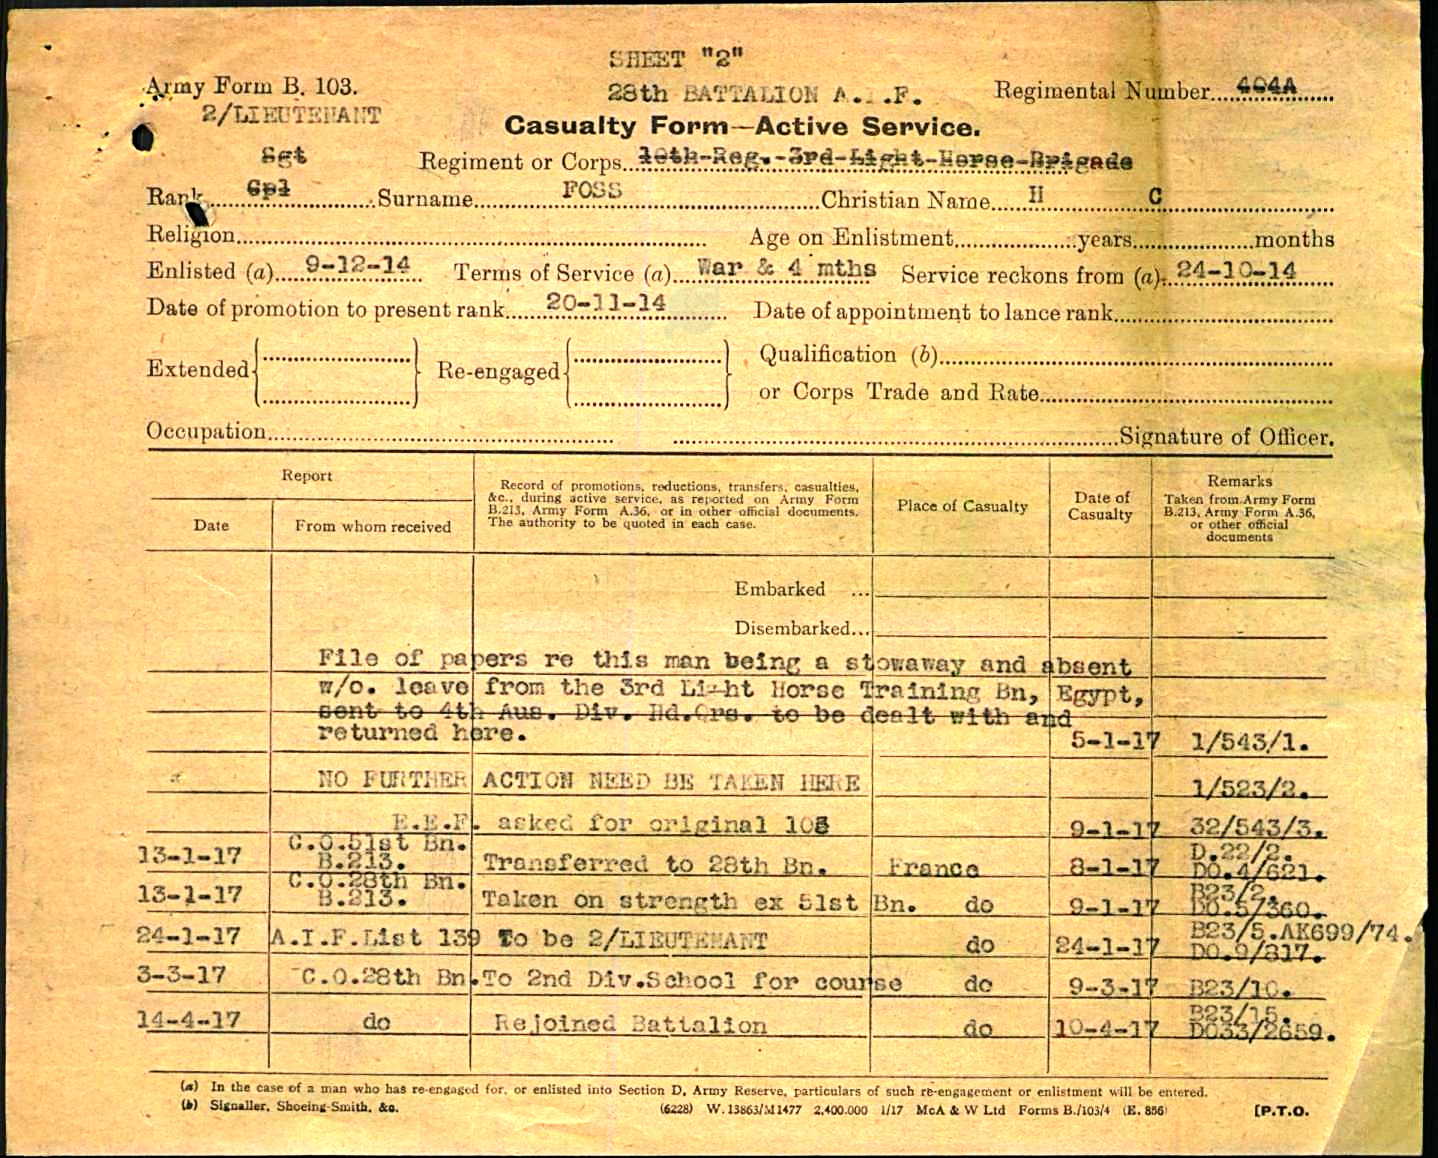 SHEET "2"
Army Form B. 103.
28th BATTALION A.I.F.
Regimental Number....404A
2/LIEUTENANT
Casualty Form—Active Service.
Sgt
Regiment or Corps...10th-Reg.-3rd-Light-Horse-Brigade
Rank....Cpl....Surname....FOSS....Christian Name....H C
Religion.... Age on Enlistment....years....months
Enlisted (a)....9-12-14 Terms of Service (a)...War & 4 mths Service reckons from (a)..24-10-14
Date of promotion to present rank....20-11-14 Date of appointment to lance rank....
Qualification (b)....
Extended Re-engaged
or Corps Trade and Rate....
Occupation.... ....Signature of Officer.
Report
Date
From whom received
Record of promotions, reductions, transfers, casualties,
&c., during active service, as reported on Army Form
B.213, Army Form A.36, or in other official documents.
The authority to be quoted in each case.
Place of Casualty
Date of
Casualty
Remarks
Taken from Army Form
B.213, Army Form A.36,
or other official
documents
Embarked ...
Disembarked...
File of papers re this man being a stowaway and absent
w/o. leave from the 3rd Light Horse Training Bn, Egypt,
sent to 4th Aus. Div. Hd.Qrs. to be dealt with and
returned here. 5-1-17 1/543/1.
NO FURTHER ACTION NEED BE TAKEN HERE 1/523/2.
E.E.F. asked for original 103 9-1-17 32/543/3.
13-1-17 C.O.51st Bn. B.213. Transferred to 28th Bn. France 8-1-17 D.22/2. DO.4/621.
13-1-17 C.O.28th Bn. B.213. Taken on strength ex 51st Bn. do 9-1-17 B23/2. DO.5/360.
24-1-17 A.I.F.List 139 To be 2/LIEUTENANT do 24-1-17 B23/5.AK699/74. DO.9/817.
3-3-17 C.O.28th Bn. To 2nd Div.School for course do 9-3-17 B23/10.
14-4-17 do Rejoined Battalion do 10-4-17 B23/15. DO33/2659.
(a) In the case of a man who has re-engaged for, or enlisted into Section D, Army Reserve, particulars of such re-engagement or enlistment will be entered.
(b) Signaller, Shoeing-Smith, &c.
(6228) W. 13863/M1477 2,400,000 1/17 McA & W Ltd Forms B./103/4 (E. 856)
[P.T.O.